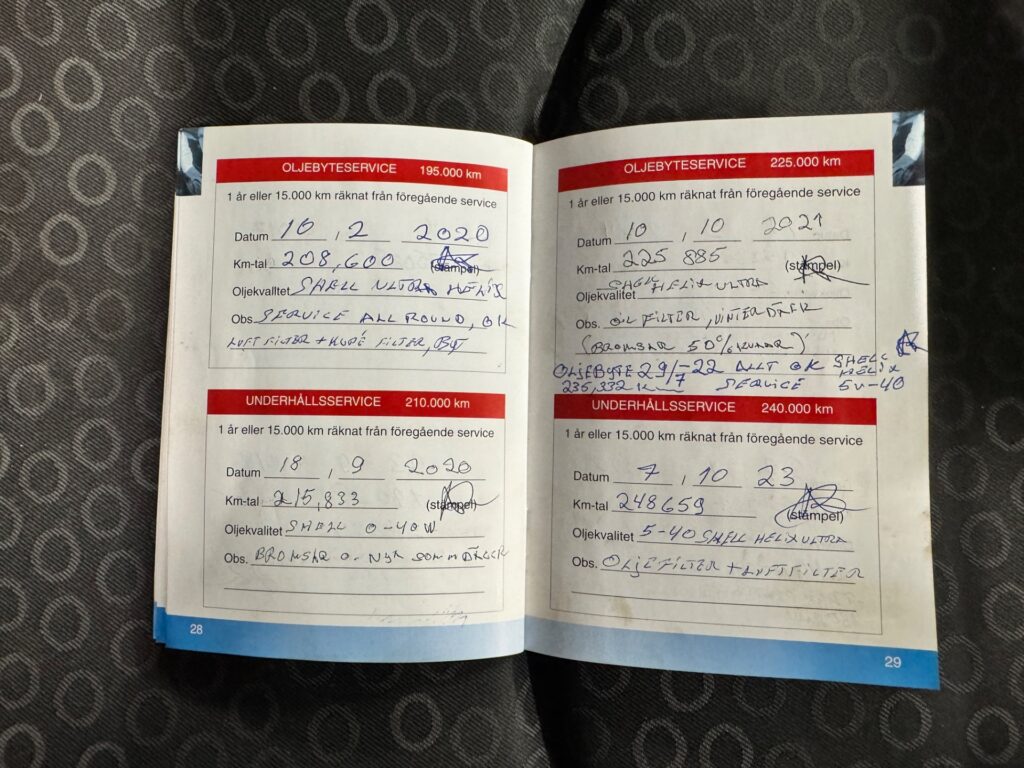 OLJEBYTESERVICE 195.000 km
1 år eller 15.000 km räknat från föregående service
Datum 10 , 2 2020
Km-tal 208,600 (stämpel)
Oljekvalitet SHELL ULTRA HELIX
Obs. SERVICE ALL ROUND, OK
LUFT FILTER + KUPÉ FILTER,
UNDERHÅLLSSERVICE 210.000 km
1 år eller 15.000 km räknat från föregående service
Datum 18 , 9 2020
Km-tal 215,833 (stämpel)
Oljekvalitet SHELL 0-40W
Obs. BROMSAR O. NYA SOMMARDÄCK
28
OLJEBYTESERVICE 225.000 km
1 år eller 15.000 km räknat från föregående service
Datum 10 , 10 2021
Km-tal 225 885 (stämpel)
Oljekvalitet SHELL HELIX ULTRA
Obs. OIL FILTER, VINTERDÄCK
(BROMSAR 50%
OLJEBYTE 29/7 -22 ALLT OK SHELL HELIX
235,332 km SERVICE 5W-40
UNDERHÅLLSSERVICE 240.000 km
1 år eller 15.000 km räknat från föregående service
Datum 7 , 10 23
Km-tal 248659 (stämpel)
Oljekvalitet 5-40 SHELL HELIX ULTRA
Obs. OLJEFILTER + LUFTFILTER
29